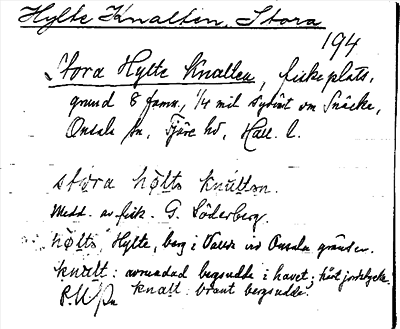 Hylte Knallen, Stora
194
Stora Hylte Knallen, fiskeplats,
grund 8 famn., 1/4 mil sydväst om Snäcke,
Onsala sn, Fjäre hd, Hall. l.
stora hølta knutton.
Medd. av fisk. G. Söderberg.
hølta, Hylte, berg i Vallda vid Onsala gränsen.
knall: avrundad bergsudde i havet; hårt jordstycke.
knall: brant bergsudde.